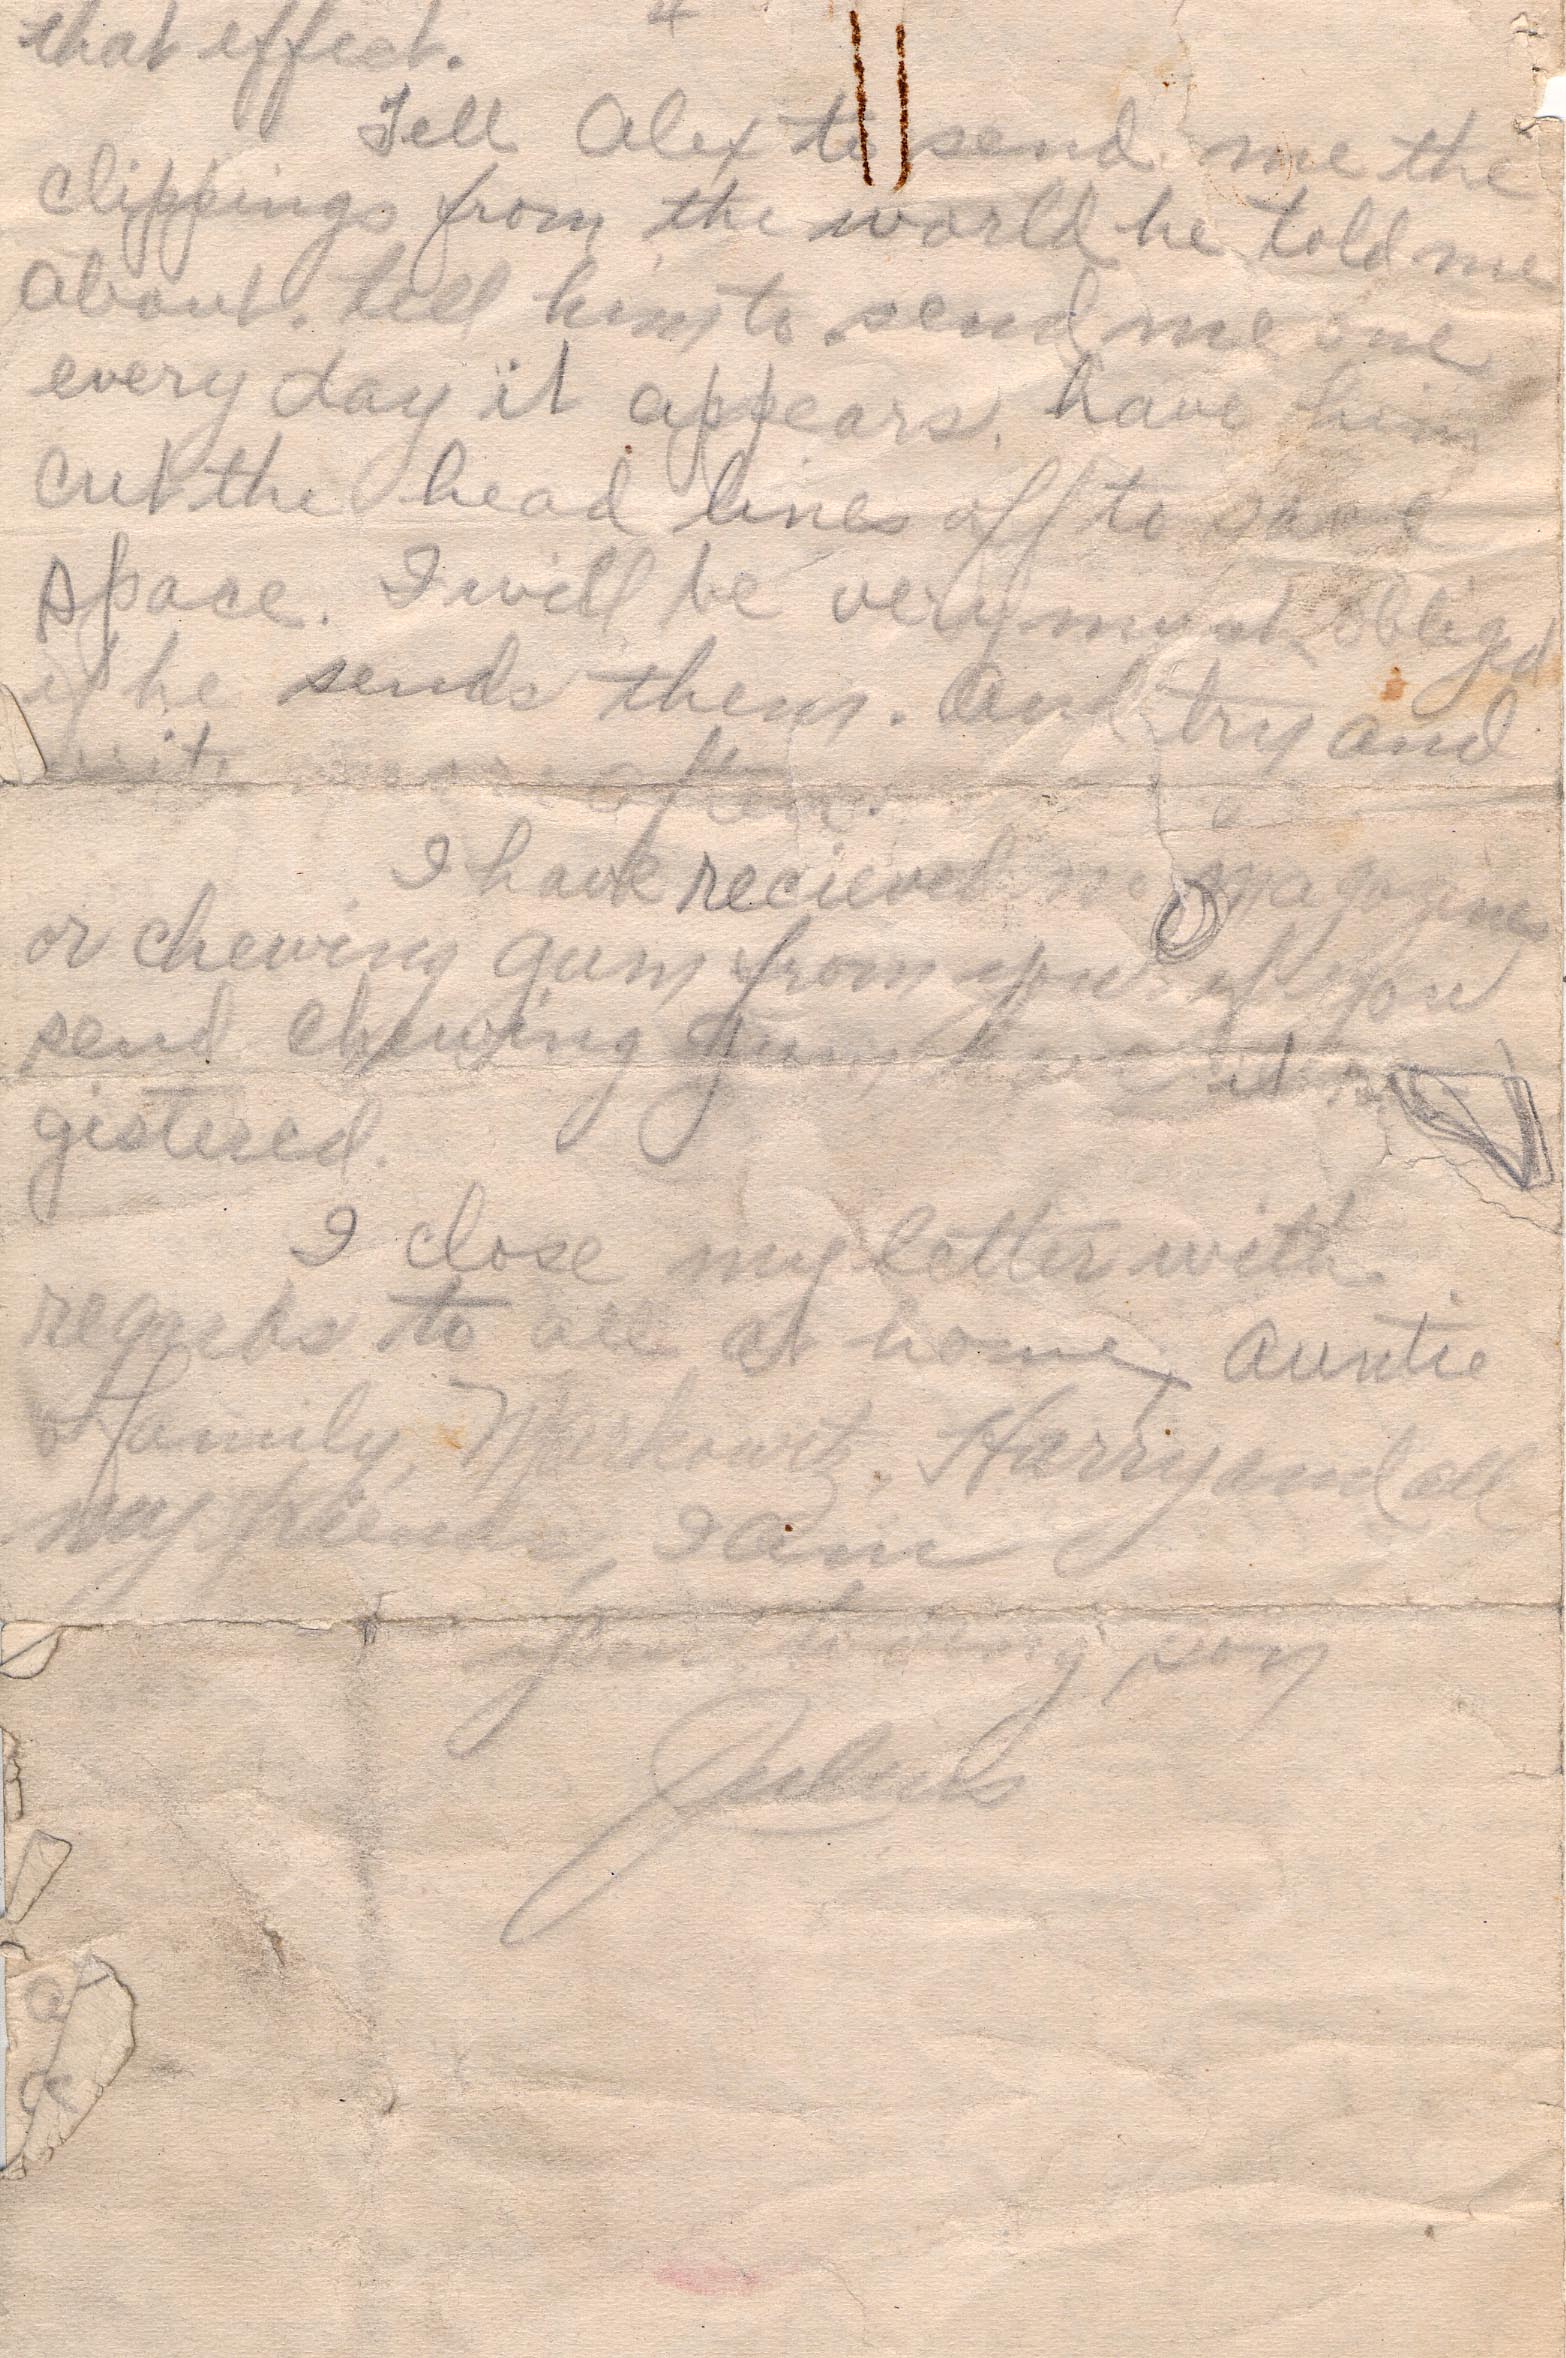 4
that effect.
Tell Alex to send me the
clippings from the world he told me
about. tell him to send me one
every day it appears. have him
cut the head lines off to save
space. I will be very much obliged
if he sends them. And try and
write more often.
I have recieved no magazines
or chewing gum from you. if you
send chewing gum have it re
gistered.
I close my letter with
regards to all at home, Auntie
& family, Markowitz, Harry and all
my friends, I am
your loving son
Julius